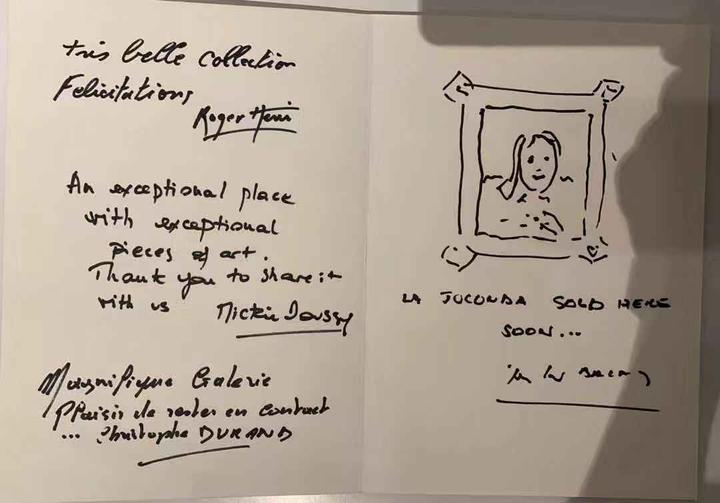 très belle collection
Felicitations
Roger
An exceptional place
with exceptional
pieces of art.
Thank you to share it
with us
Magnifique Galerie
Plaisir de rester en contact
... Christophe DURAND
LA JOCONDA SOLD HERE
SOON...